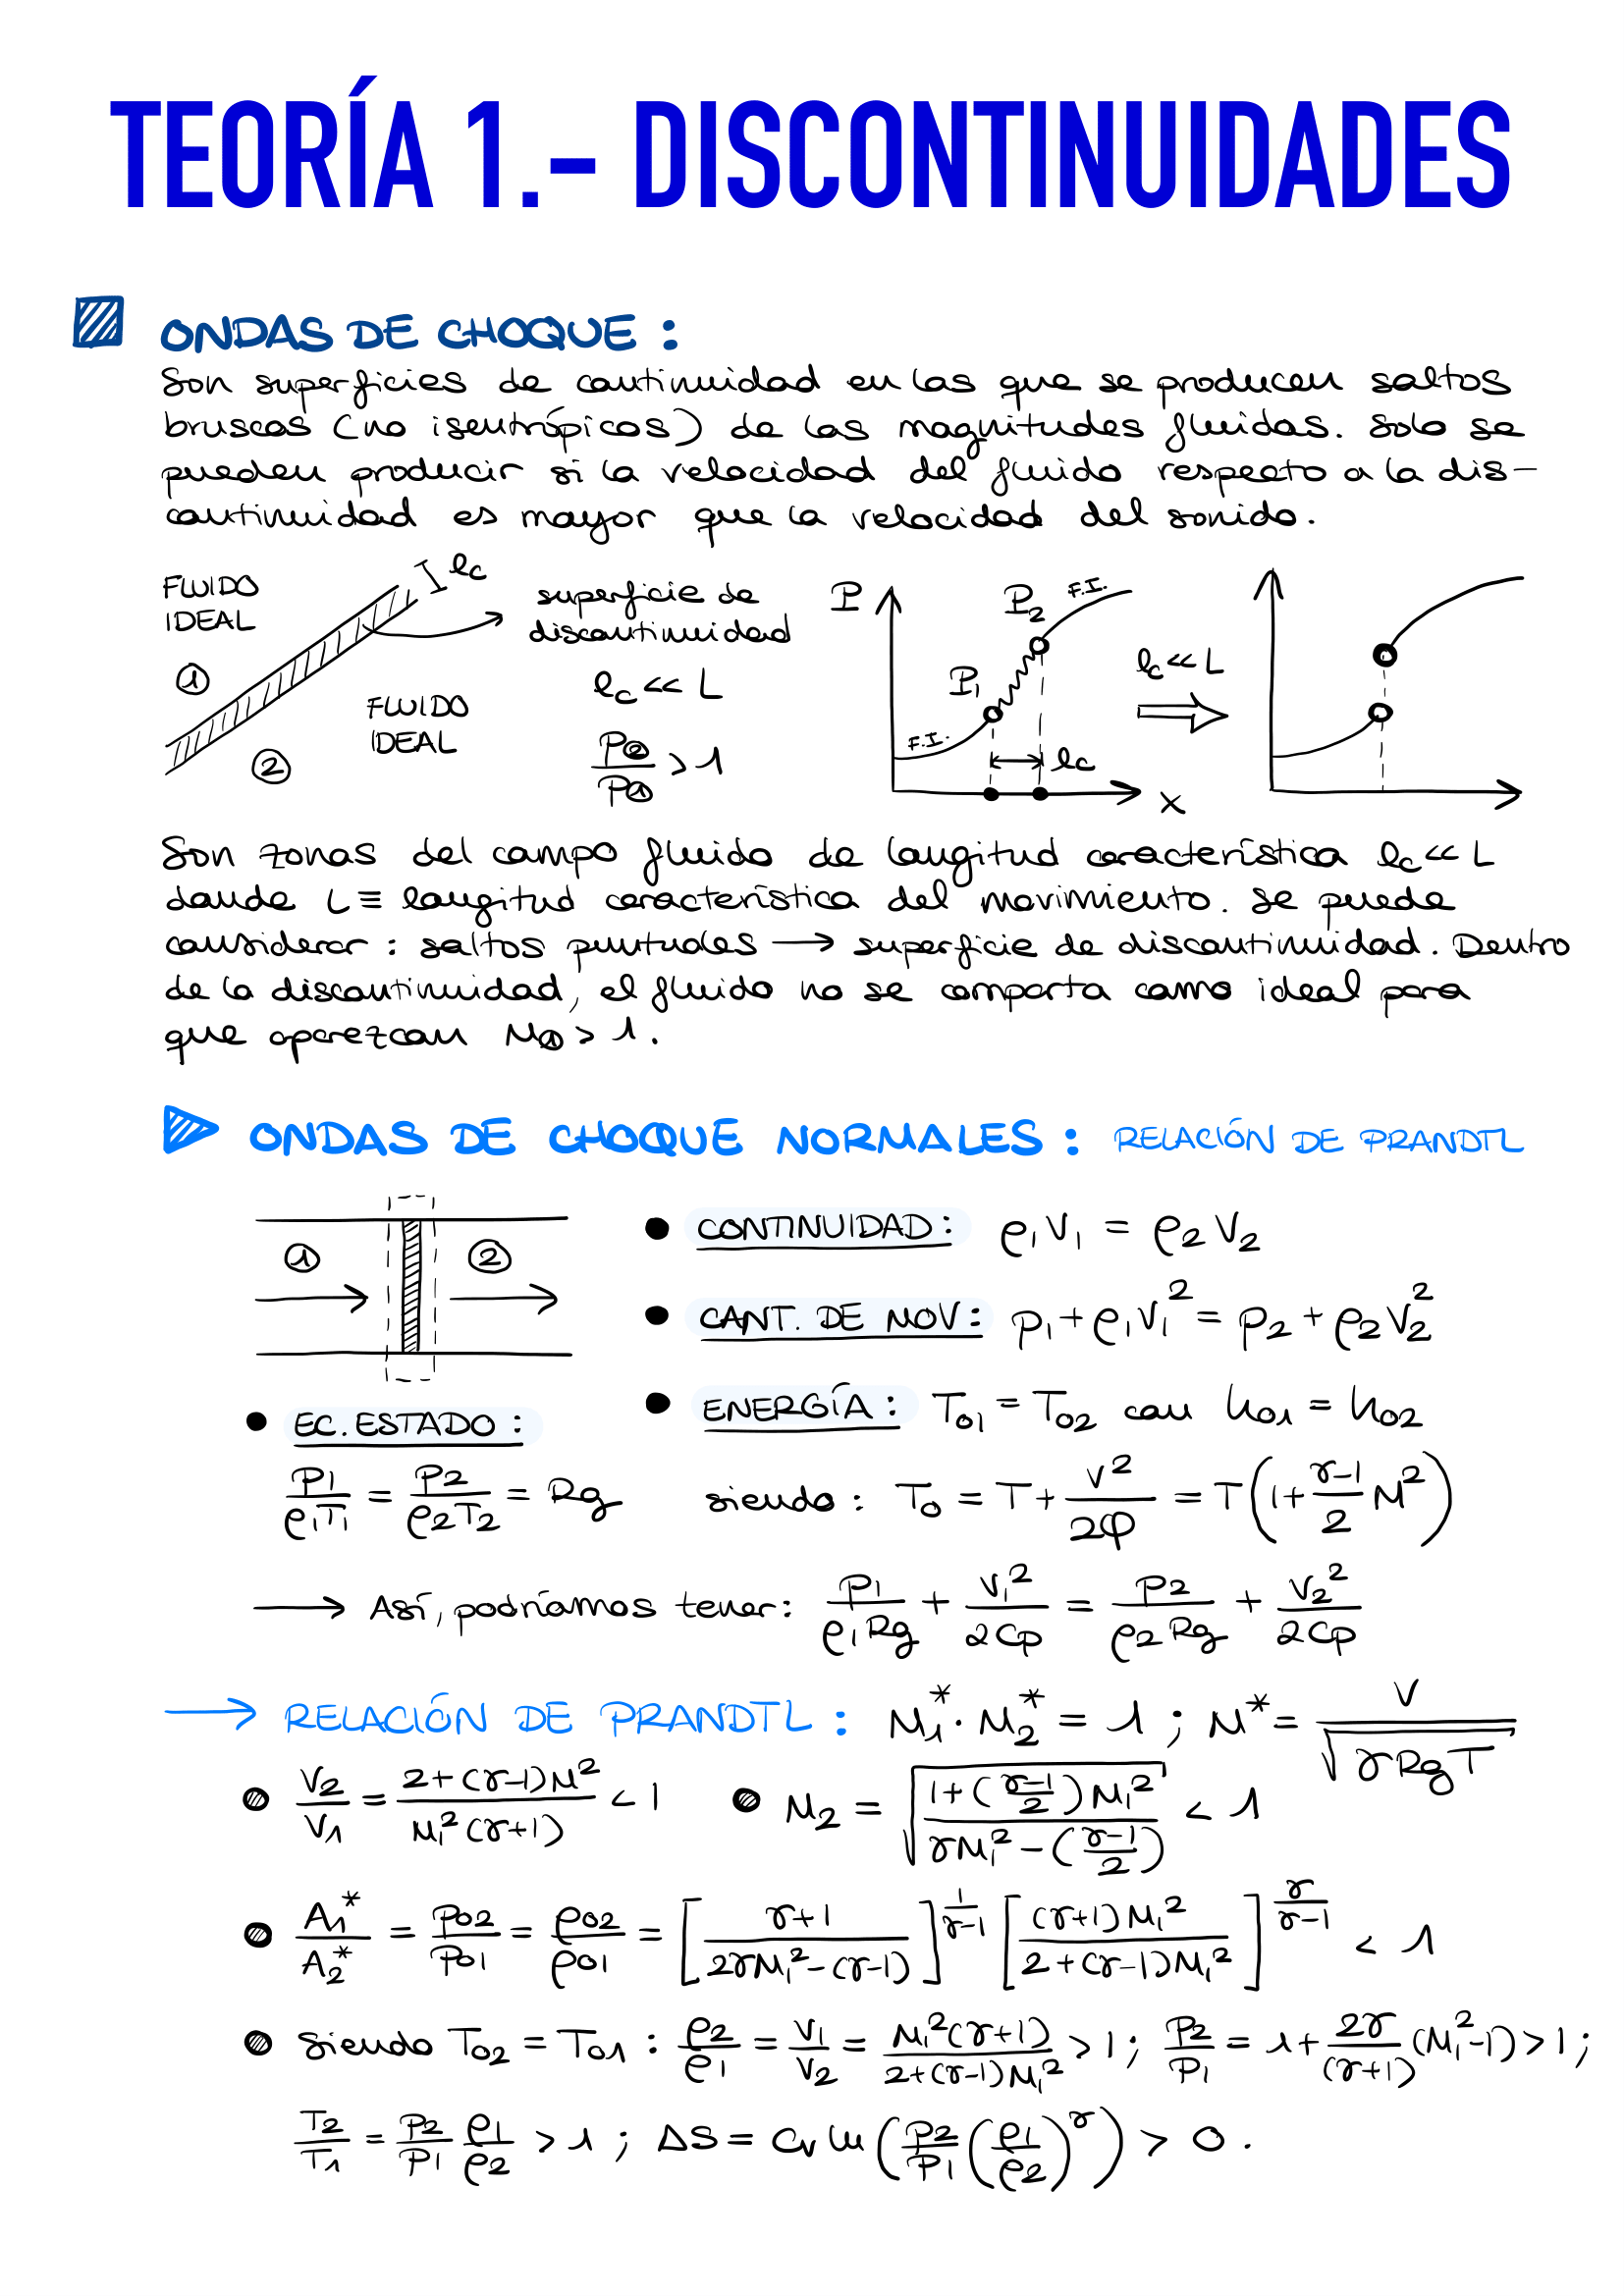 TEORÍA 1.- DISCONTINUIDADES
ONDAS DE CHOQUE :
Son superficies de continuidad en las que se producen saltos
bruscos (no isentrópicos) de las magnitudes fluidas. Solo se
pueden producir si la velocidad del fluido respecto a la dis-
continuidad es mayor que la velocidad del sonido.
FLUIDO IDEAL
①
lc
superficie de
discontinuidad
FLUIDO IDEAL
②
lc << L
P② / P① > 1
P
P1
P2
F.I.
F.I.
lc
x
lc << L
Son zonas del campo fluido de longitud característica lc << L
donde L ≡ longitud característica del movimiento. Se puede
considerar : saltos puntuales → superficie de discontinuidad. Dentro
de la discontinuidad, el fluido no se comporta como ideal para
que aparezcan M① > 1.
ONDAS DE CHOQUE NORMALES : RELACIÓN DE PRANDTL
① ②
• CONTINUIDAD : ρ1 V1 = ρ2 V2
• CANT. DE MOV : p1 + ρ1 V1² = p2 + ρ2 V2²
• ENERGÍA : T01 = T02 con h01 = h02
• EC. ESTADO :
P1 / (ρ1 T1) = P2 / (ρ2 T2) = Rg
siendo : T0 = T + V² / 2Cp = T (1 + (γ-1)/2 M²)
→ Así, podríamos tener : P1 / (ρ1 Rg) + V1² / 2Cp = P2 / (ρ2 Rg) + V2² / 2Cp
→ RELACIÓN DE PRANDTL : M1* · M2* = 1 ; M* = V / √(γ Rg T)
• V2 / V1 = (2 + (γ-1) M²) / (M1² (γ+1)) < 1
• M2 = √((1 + ((γ-1)/2) M1²) / (γ M1² - ((γ-1)/2))) < 1
• A1* / A2* = P02 / P01 = ρ02 / ρ01 = [(γ+1) / (2γM1² - (γ-1))]^(1/(γ-1)) [((γ+1) M1²) / (2 + (γ-1) M1²)]^(γ/(γ-1)) < 1
• Siendo T02 = T01 : ρ2 / ρ1 = V1 / V2 = M1² (γ+1) / (2 + (γ-1) M1²) > 1 ; P2 / P1 = 1 + 2γ / (γ+1) (M1² - 1) > 1 ;
T2 / T1 = P2 / P1 ρ1 / ρ2 > 1 ; ΔS = Cv ln (P2 / P1 (ρ1 / ρ2)^γ) > 0 .